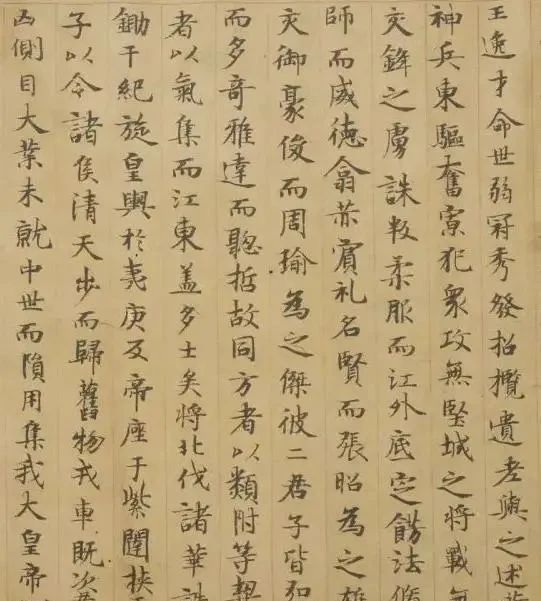 王逸才命世弱冠秀發招攬遺老與之述
神兵東驅奮寡犯衆攻無堅城之將戰
交鋒之虜誅叛柔服而江外底定飭法脩
師而威德翕赫賓礼名賢而張昭為之雄
交御豪俊而周瑜為之傑彼二君子皆弘
而多奇雅達而聰哲故同方者以類附等契
者以氣集而江東盖多士矣將北伐諸華
鋤干紀旋皇輿於夷庚反帝座于紫闥挾
子以令諸侯清天步而歸舊物戎車既次
凶側目大業未就中世而隕用集我大皇帝